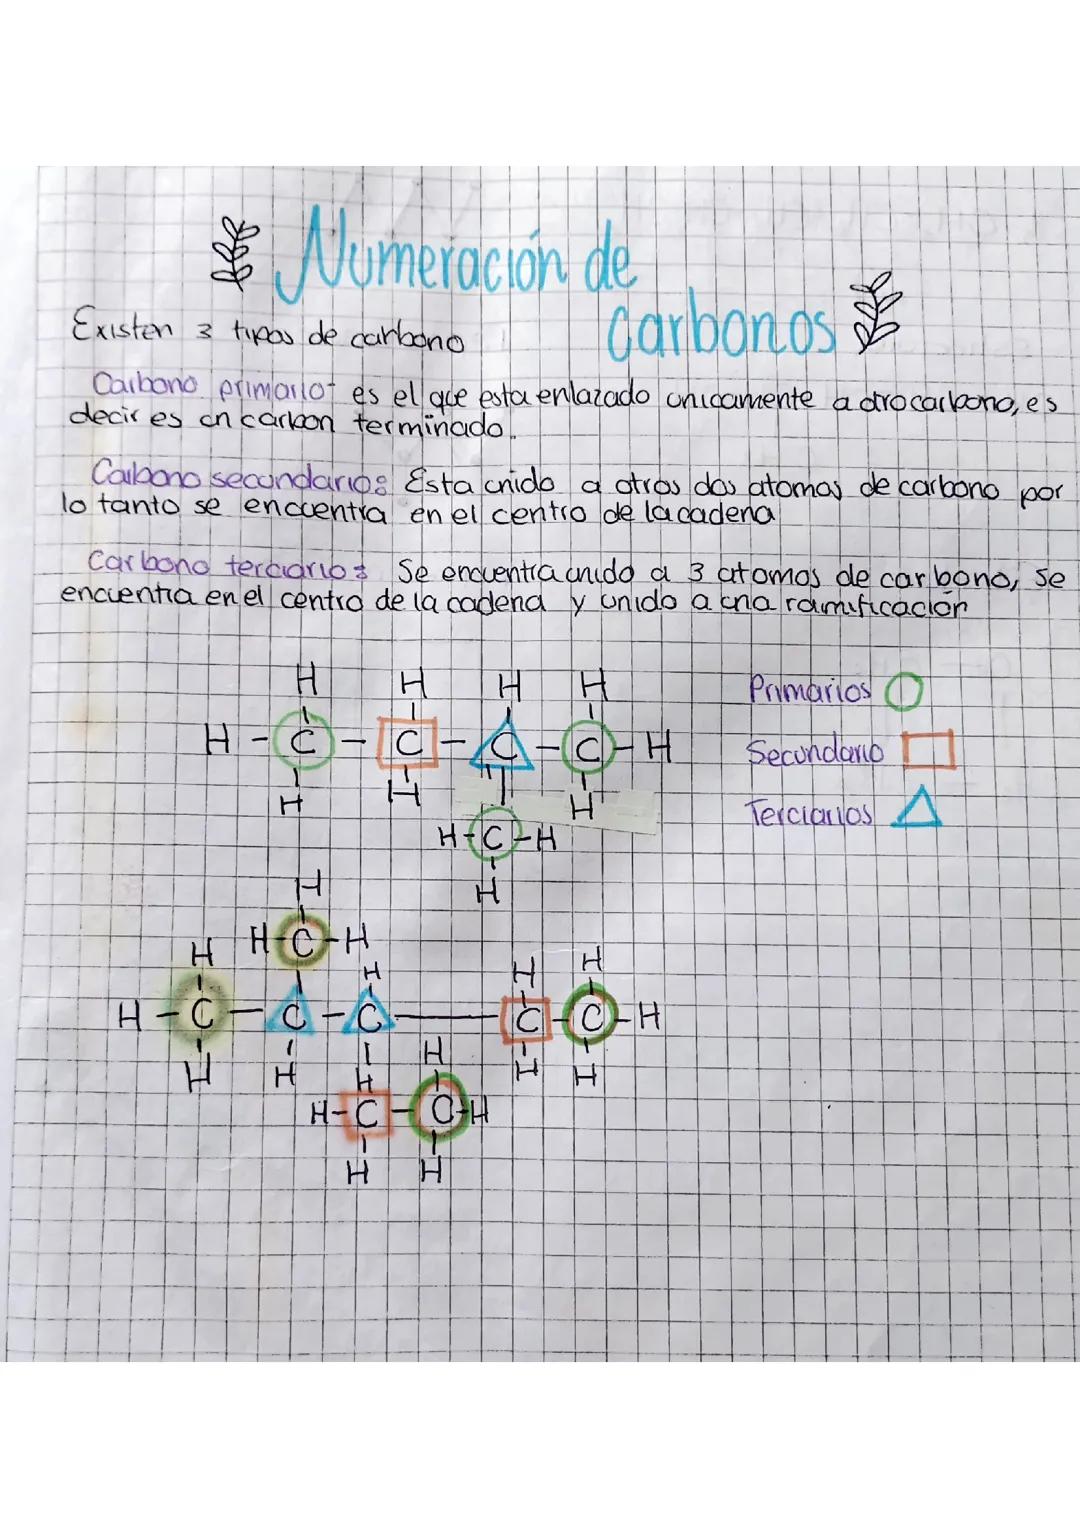 Numeración de
Carbonos
Existen 3 tipos de carbono
Carbono primario: es el que esta enlazado unicamente a otro carbono, es
decir es un carbon terminado.
Carbono secundario: Esta unido a otros dos atomos de carbono por
lo tanto se encuentra en el centro de la cadena
Carbono terciario: Se encuentra unido a 3 atomos de carbono, se
encuentra en el centro de la cadena y unido a una ramificación
H H H H
H - C - C - C - C - H
H H H
H - C - H
H
Primarios
Secundario
Terciarios
H
H - C - H
H H H H
H - C - C - C - C - C - H
H H H H H H
H - C - C - H
H H